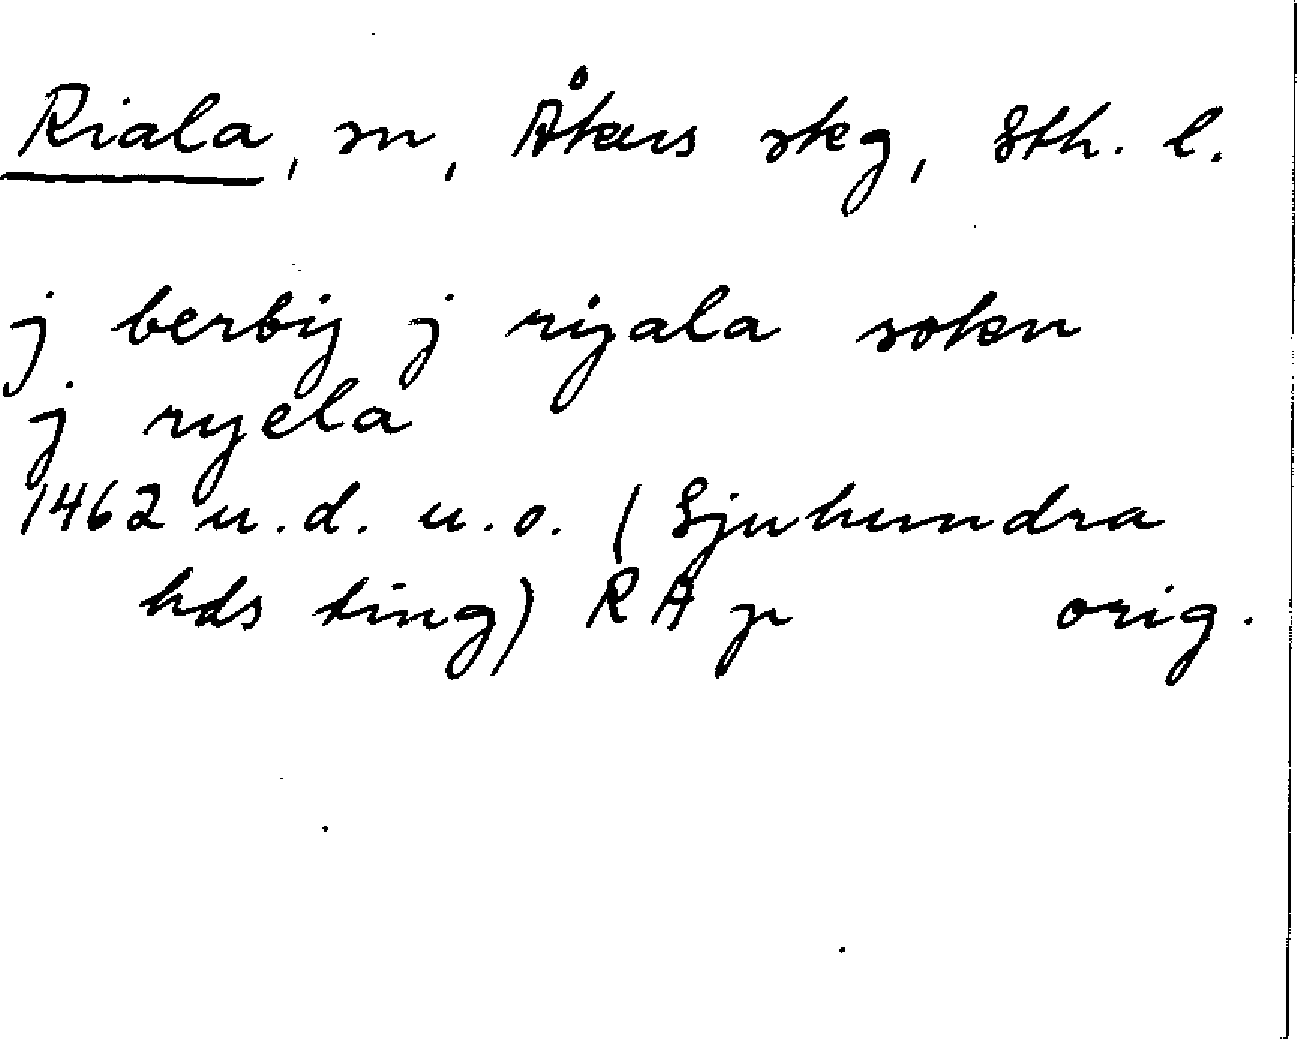 Riala, sn, Åkers skg, Sth. l.
j berbij j rijala sokn
j ryela
1462 u.d. u.o. (Sjuhundra
hds ting) RA p orig.